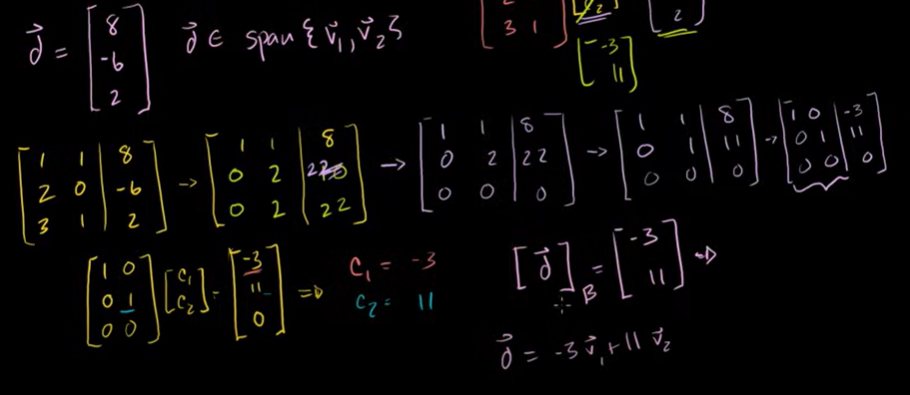 3 1
2
[-3
11]
d⃗ = [8
-6
2] d⃗ ∈ span {v⃗₁, v⃗₂}
[1 1 | 8
2 0 | -6
3 1 | 2] → [1 1 | 8
0 2 | 22
0 2 | 22] → [1 1 | 8
0 2 | 22
0 0 | 0] → [1 1 | 8
0 1 | 11
0 0 | 0] → [1 0 | -3
0 1 | 11
0 0 | 0]
[1 0
0 1
0 0] [c₁
c₂] = [-3
11
0] ⇒ c₁ = -3
c₂ = 11
[d⃗]B = [-3
11] ⇒
d⃗ = -3v⃗₁ + 11v⃗₂